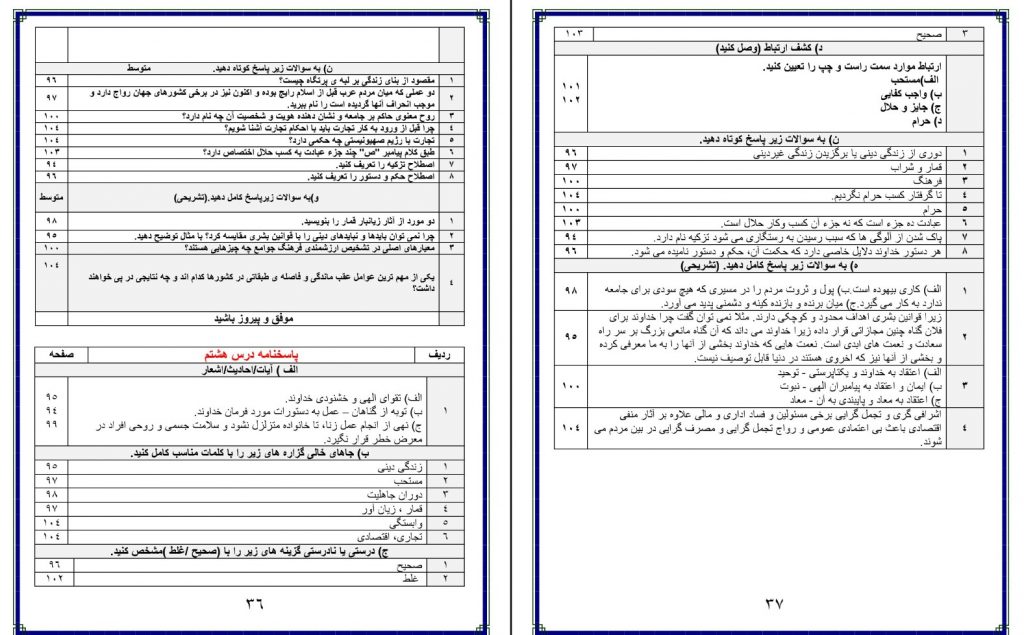 ن) به سوالات زیر پاسخ کوتاه دهید. متوسط
۱ مقصود از بنای زندگی بر لبه ی پرتگاه چیست؟ ۹۶
۲ دو عملی که میان مردم عرب قبل از اسلام رایج بوده و اکنون نیز در برخی کشورهای جهان رواج دارد و
موجب انحراف آنها گردیده است را نام ببرید. ۹۷
۳ روح معنوی حاکم بر جامعه و نشان دهنده هویت و شخصیت آن چه نام دارد؟ ۱۰۰
۴ چرا قبل از ورود به کار تجارت باید با احکام تجارت آشنا شویم؟ ۱۰۴
۵ تجارت با رژیم صهیونیستی چه حکمی دارد؟ ۱۰۴
۶ طبق کلام پیامبر "ص" چند جزء عبادت به کسب حلال اختصاص دارد؟ ۱۰۳
۷ اصطلاح تزکیه را تعریف کنید. ۹۴
۸ اصطلاح حکم و دستور را تعریف کنید. ۹۶
و)به سوالات زیرپاسخ کامل دهید.(تشریحی) متوسط
۱ دو مورد از آثار زیانبار قمار را بنویسید. ۹۸
۲ چرا نمی توان بایدها و نبایدهای دینی را با قوانین بشری مقایسه کرد؟ با مثال توضیح دهید. ۹۵
۳ معیارهای اصلی در تشخیص ارزشمندی فرهنگ جوامع چه چیزهایی هستند؟ ۱۰۰
۴ یکی از مهم ترین عوامل عقب ماندگی و فاصله ی طبقاتی در کشورها کدام اند و چه نتایجی در پی خواهند
داشت؟ ۱۰۴
موفق و پیروز باشید
ردیف پاسخنامه درس هشتم صفحه
الف ) آیات/احادیث/اشعار
۱ الف) تقوای الهی و خشنودی خداوند. ۹۵
ب) توبه از گناهان – عمل به دستورات مورد فرمان خداوند. ۹۴
ج) نهی از انجام عمل زنا، تا خانواده متزلزل نشود و سلامت جسمی و روحی افراد در ۹۹
معرض خطر قرار نگیرد.
ب) جاهای خالی گزاره های زیر را با کلمات مناسب کامل کنید.
۱ زندگی دینی ۹۵
۲ مستحب ۹۷
۳ دوران جاهلیت ۹۸
۴ قمار ، زیان آور ۹۷
۵ وابستگی ۱۰۴
۶ تجاری، اقتصادی ۱۰۴
ج) درستی یا نادرستی گزینه های زیر را با (صحیح /غلط )مشخص کنید.
۱ صحیح ۹۶
۲ غلط ۱۰۲
۳۶
۳ صحیح ۱۰۳
د) کشف ارتباط (وصل کنید)
ارتباط موارد سمت راست و چپ را تعیین کنید.
الف)مستحب ۱۰۱
ب) واجب کفایی ۱۰۲
ج) جایز و حلال
د) حرام
ن) به سوالات زیر پاسخ کوتاه دهید.
۱ دوری از زندگی دینی یا برگزیدن زندگی غیردینی ۹۶
۲ قمار و شراب ۹۷
۳ فرهنگ ۱۰۰
۴ تا گرفتار کسب حرام نگردیم. ۱۰۴
۵ حرام ۱۰۰
۶ عبادت ده جزء است که نه جزء آن کسب وکار حلال است. ۱۰۳
۷ پاک شدن از آلوگی ها که سبب رسیدن به رستگاری می شود تزکیه نام دارد. ۹۴
۸ هر دستور خداوند دلایل خاصی دارد که حکمت آن، حکم و دستور نامیده می شود. ۹۶
ه) به سوالات زیر پاسخ کامل دهید. (تشریحی)
۱ الف) کاری بیهوده است.ب) پول و ثروت مردم را در مسیری که هیچ سودی برای جامعه
ندارد به کار می گیرد.ج) میان برنده و بازنده کینه و دشمنی پدید می آورد. ۹۸
۲ زیرا قوانین بشری اهداف محدود و کوچکی دارند. مثلا نمی توان گفت چرا خداوند برای
فلان گناه چنین مجازاتی قرار داده زیرا خداوند می داند که آن گناه مانعی بزرگ بر سر راه
سعادت و نعمت های ابدی است. نعمت هایی که خداوند بخشی از آنها را به ما معرفی کرده ۹۵
و بخشی از آنها نیز که اخروی هستند در دنیا قابل توصیف نیست.
۳ الف) اعتقاد به خداوند و یکتاپرستی - توحید
ب) ایمان و اعتقاد به پیامبران الهی - نبوت ۱۰۰
ج) اعتقاد به معاد و پایبندی به آن - معاد
۴ اشرافی گری و تجمل گرایی برخی مسئولین و فساد اداری و مالی علاوه بر آثار منفی
اقتصادی باعث بی اعتمادی عمومی و رواج تجمل گرایی و مصرف گرایی در بین مردم می ۱۰۴
شوند.
۳۷